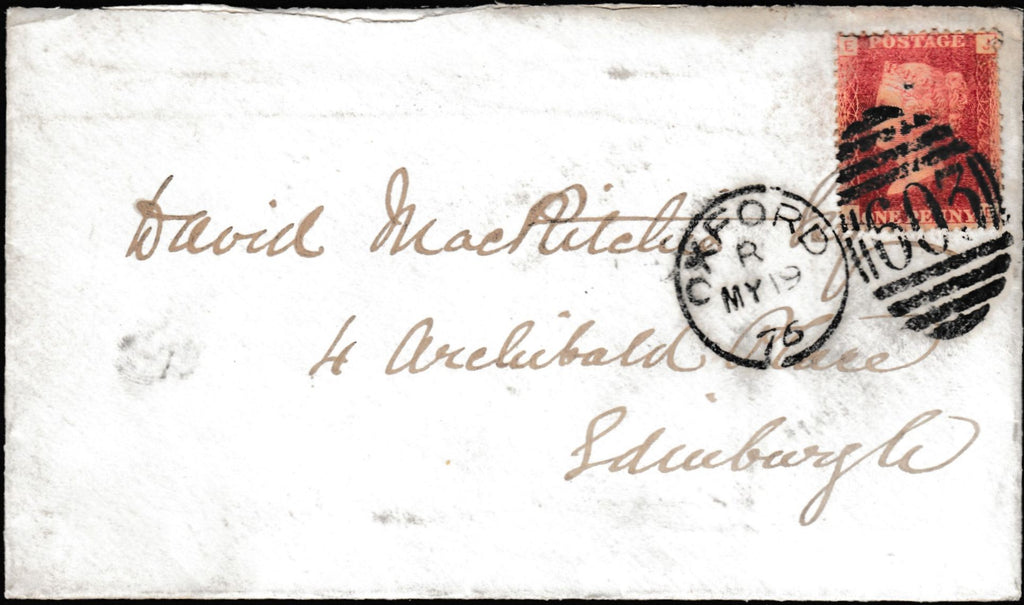 E POSTAGE J
ONE PENNY E
603
OXFORD
R
MY 19
76
David MacRitchie
4 Archibald Place
Edinburgh